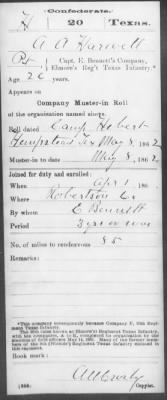 Confederate.
H 20 Texas.
A A Harwell
Pvt, Capt. E. Bennett's Company,
Elmore's Reg't Texas Infantry.*
Age 26 years.
Appears on
Company Muster-in Roll
of the organization named above.
Roll dated Camp Hebert
Hempstead Tex May 8, 1862
Muster-in to date May 8, 1862
Joined for duty and enrolled:
When Apr 1, 186
Where Robertson Co.
By whom E Bennett
Period 3 yrs or war
No. of miles to rendezvous 85
Remarks:
*This company subsequently became Company H, 20th Regiment Texas Infantry.
Book mark:
Copyist.